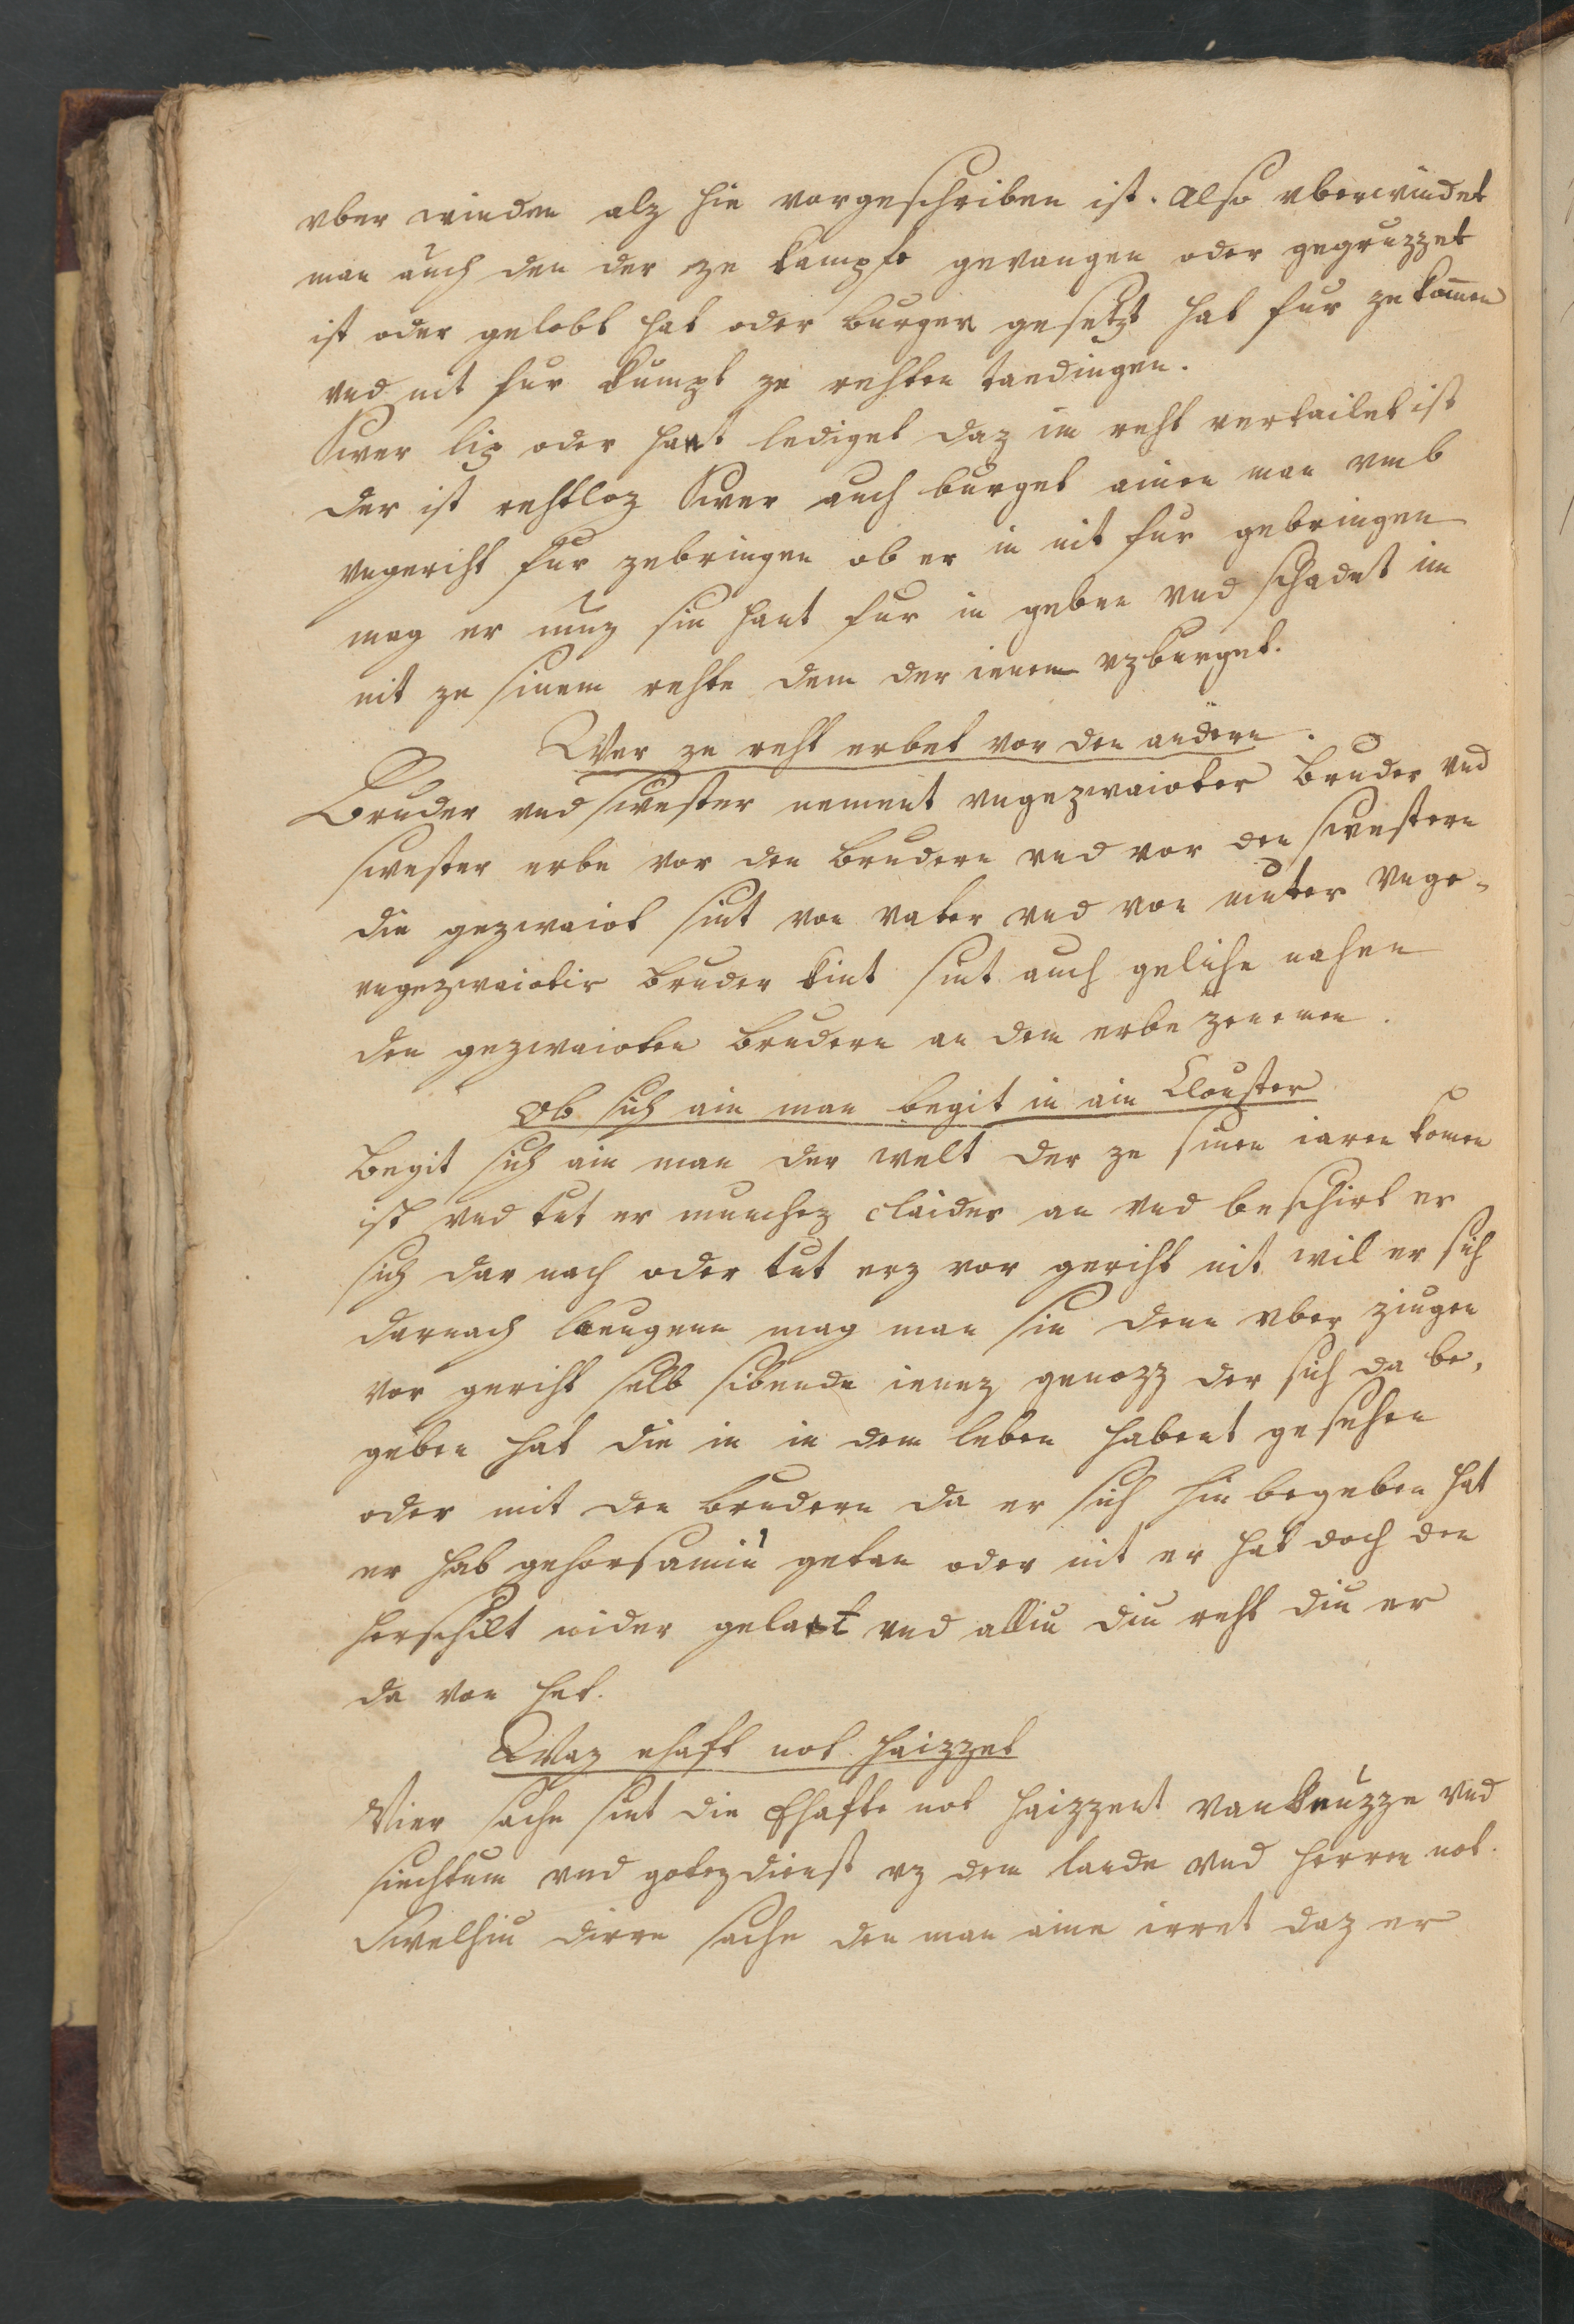 vber winden alz hie vorgeschriben ist. Also vberwindet
man auch den der ze kampfe gevangen oder gegruzzet
ist oder gelobt hat oder burgen gesetzt hat fur ze komen
vnd nit fur kumpt ze rehten taedingen.
Swer lip oder hant lediget daz im reht vertailet ist
der ist rehtloz Swer auch burget ainen man vmb
vngeriht fur zebringen ob er in nit fur gebringen
mag er muz sin hant fur in geben vnd schadet im
nit ze sinem rehte dem der ienen vzburget.
Wer ze reht erbet vor den andern.
Bruder vnd swester nement vngezwaioter Bruder vnd
swester erbe vor den brudern vnd vor den swestern
die gezwaiot sint von vater vnd von muter Vnge-
vngezwaiotir bruder kint sint auch geliche nahen
den gezwaioten brudern an dem erbe zenemen.
Ob sich ain man begit in ain Clouster
Begit sich ain man der welt der ze sinen iaren komen
ist vnd tut er munchez claider an vnd beschirt er
sich dar nach oder tut erz vor geriht nit wil er sich
darnach laeugenn mag man sin denn vber ziugen
vor geriht selb sibende ienez genozz der sich da be-
geben hat die in in dem leben habent gesehen
oder mit den brudern da er sich hin begeben hat
er hab gehorsamiu getan oder nit er hat doch den
herschilt nider gelait vnd alliu diu reht diu er
da von het.
Waz ehaft not haizzet
Vier sache sint die Ehafte not haizzent vankenuzze vnd
siechtum vnd gotezdienst vz dem lande vnd herren not.
Swelhiu dirre sache den man aine irret daz er